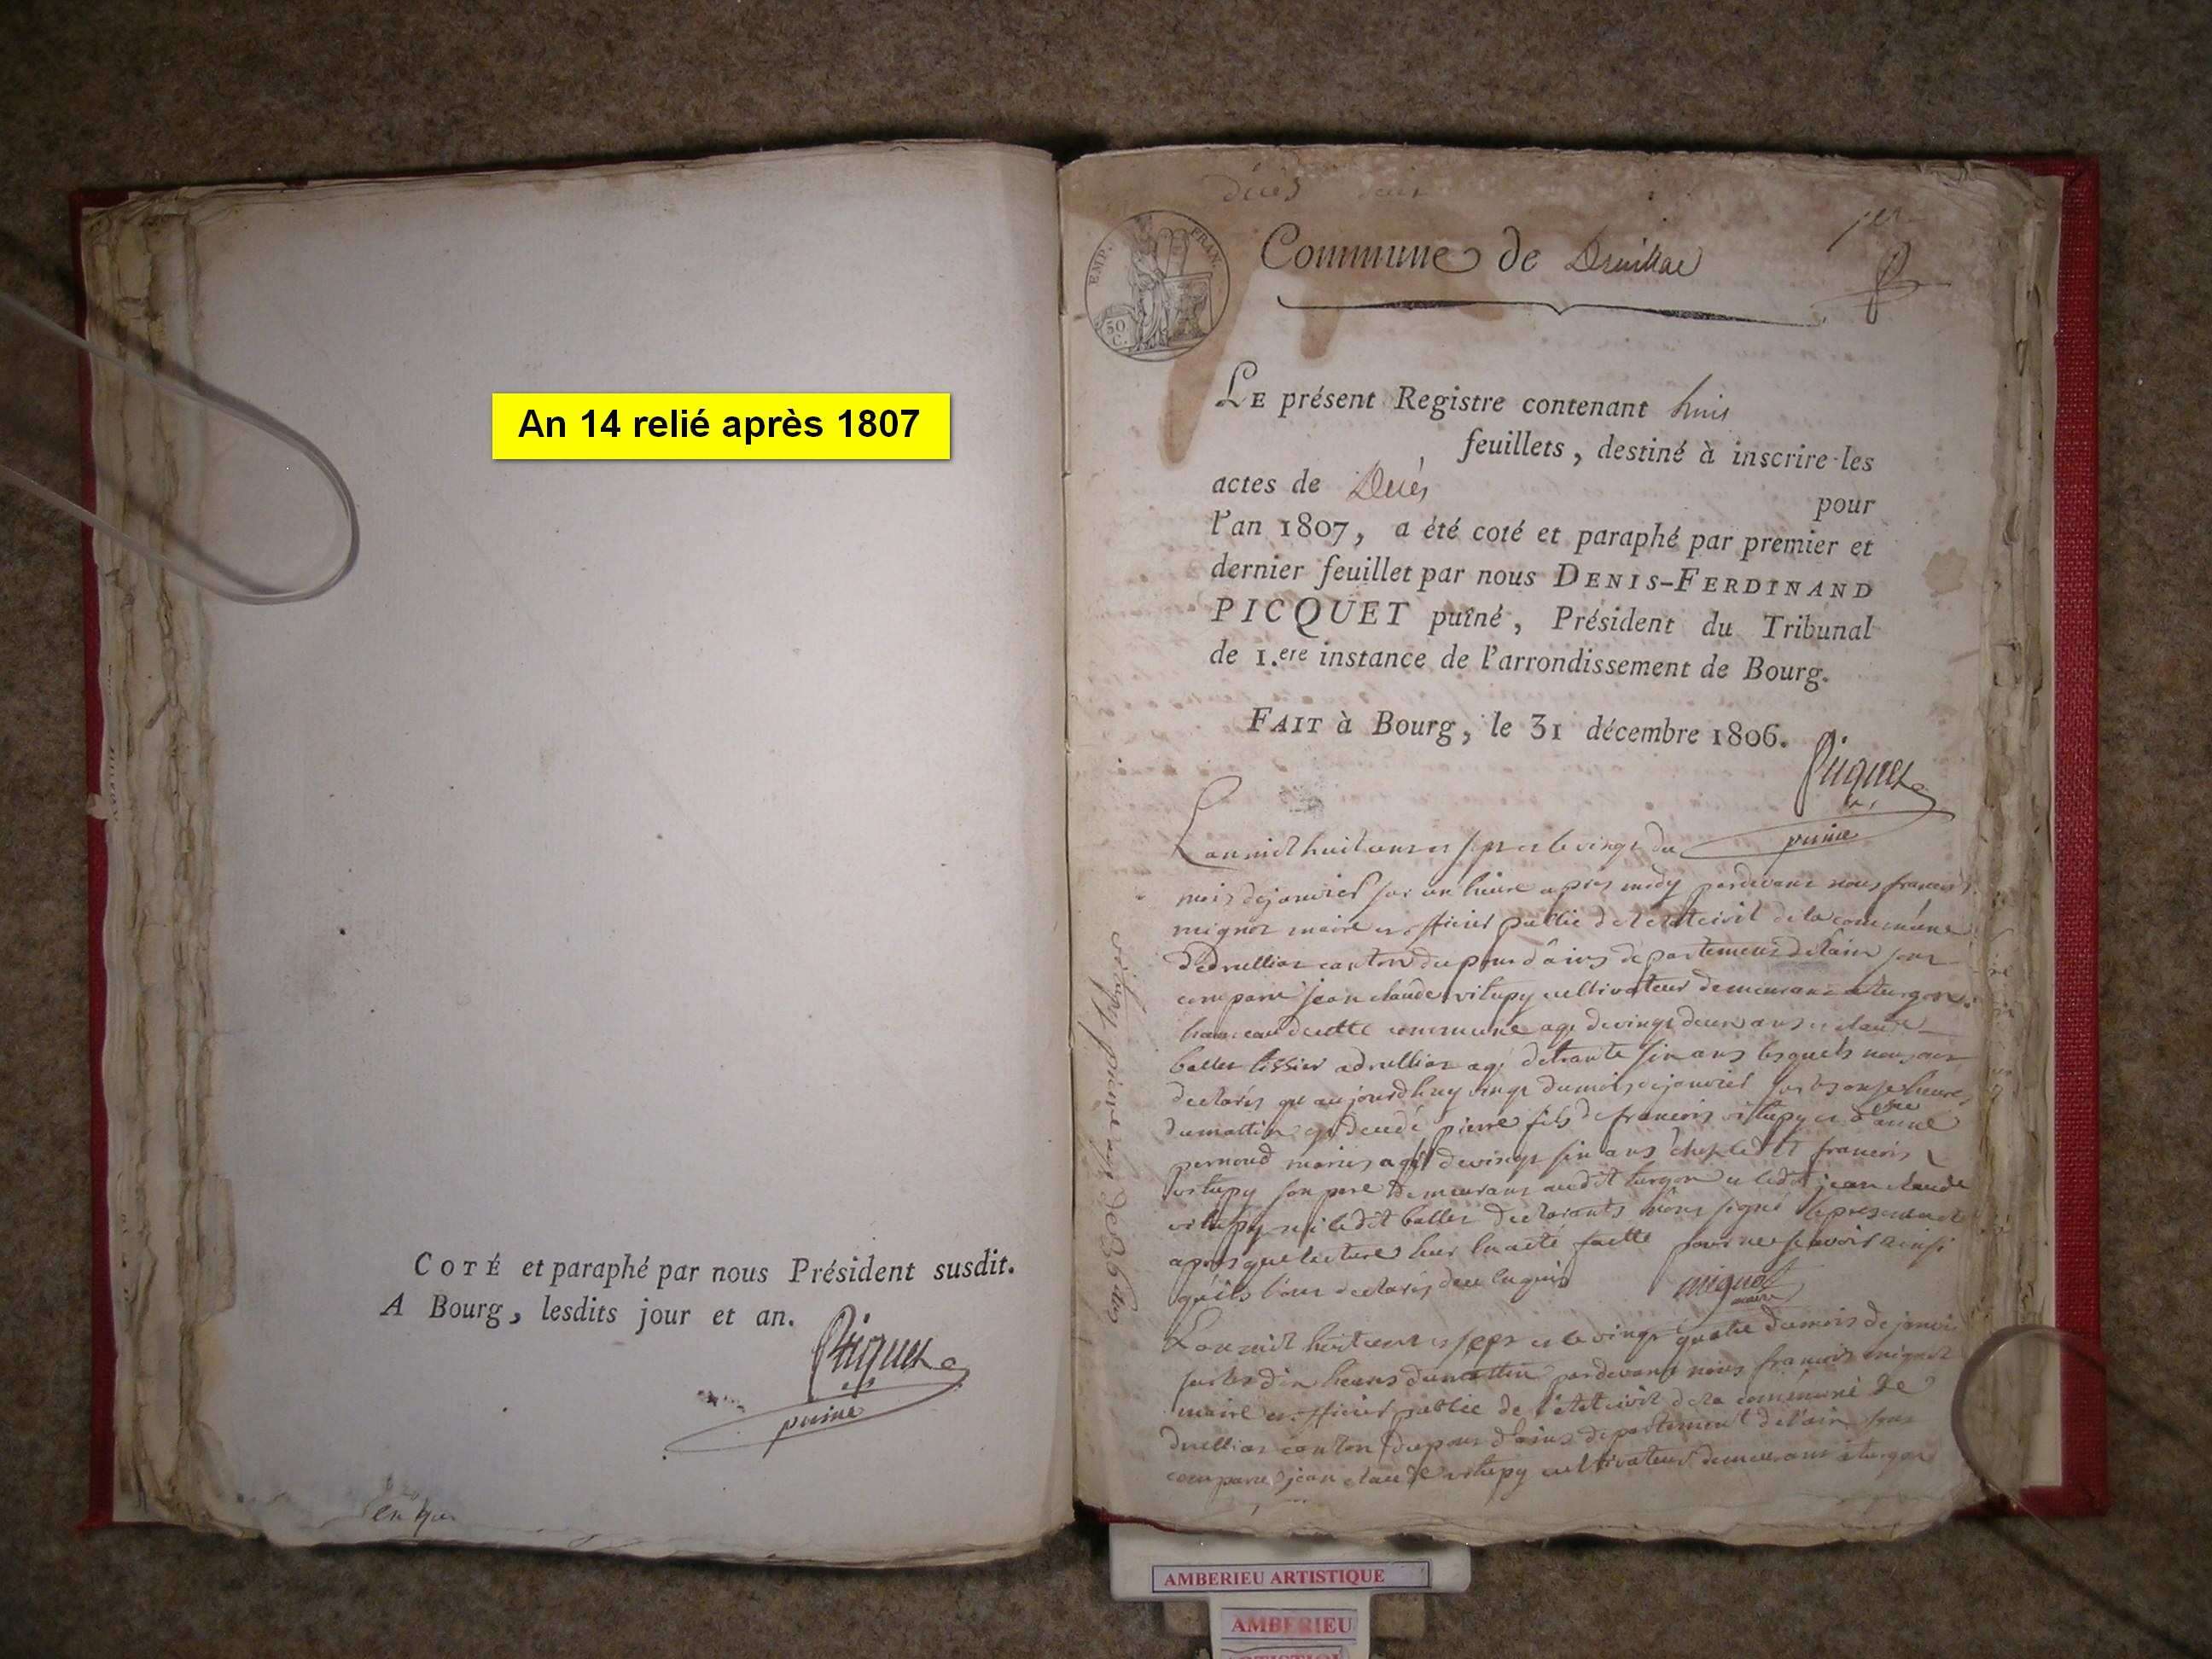 An 14 relié après 1807
COTÉ et paraphé par nous Président susdit.
A Bourg, lesdits jour et an.
Picquet
puiné
décès
1er
EMP. FRAN.
50 C.
Commune de Druillat
LE présent Registre contenant huit
feuillets, destiné à inscrire les
actes de Décès pour
l'an 1807, a été coté et paraphé par premier et
dernier feuillet par nous DENIS-FERDINAND
PICQUET puîné, Président du Tribunal
de 1.ere instance de l'arrondissement de Bourg.
FAIT à Bourg, le 31 décembre 1806.
Picquet
puiné
L'an mil huit cent et sept et le vingt du
mois de janvier sur un heure apres midy pardevant nous francois
mignot maire et officier public de l'etat civil de la commune
de druilliat canton du pont d'ains departement de l'ain sont
comparu jean claude vitupy cultivateur demeurant a turgon
hameau de cette commune agé de vingt deux ans et claude
ballet tissier a druilliat agé de trante six ans lesquels nous ont
declarés qu aujourdhuy vingt du mois de janvier sur les onze heures
du mattin est decedé pierre fils de francois vitupy et d anne
pernoud mariés agé de vingt six ans chez ledit francois
vitupy son pere demeurant audit turgon et ledit jean claude
vitupy ni ledit ballet declarants n'ont signé le present acte
apres que lecture leur en a eté faitte pour ne scavoir ainsi
qu'ils l'ont declarés de ce enquis
mignot
maire
L'an mil huit cent et sept et le vingt quatre du mois de janvier
sur les dix heures du mattin pardevant nous francois mignot
maire et officier public de l'etat civil de la commune de
druilliat canton du pont d'ains departement de l'ain sont
comparus jean claude vitupy cultivateur demeurant a turgon
vitupy pierre agé de 26 ans
AMBERIEU ARTISTIQUE
AMBERIEU
ARTISTIQUE